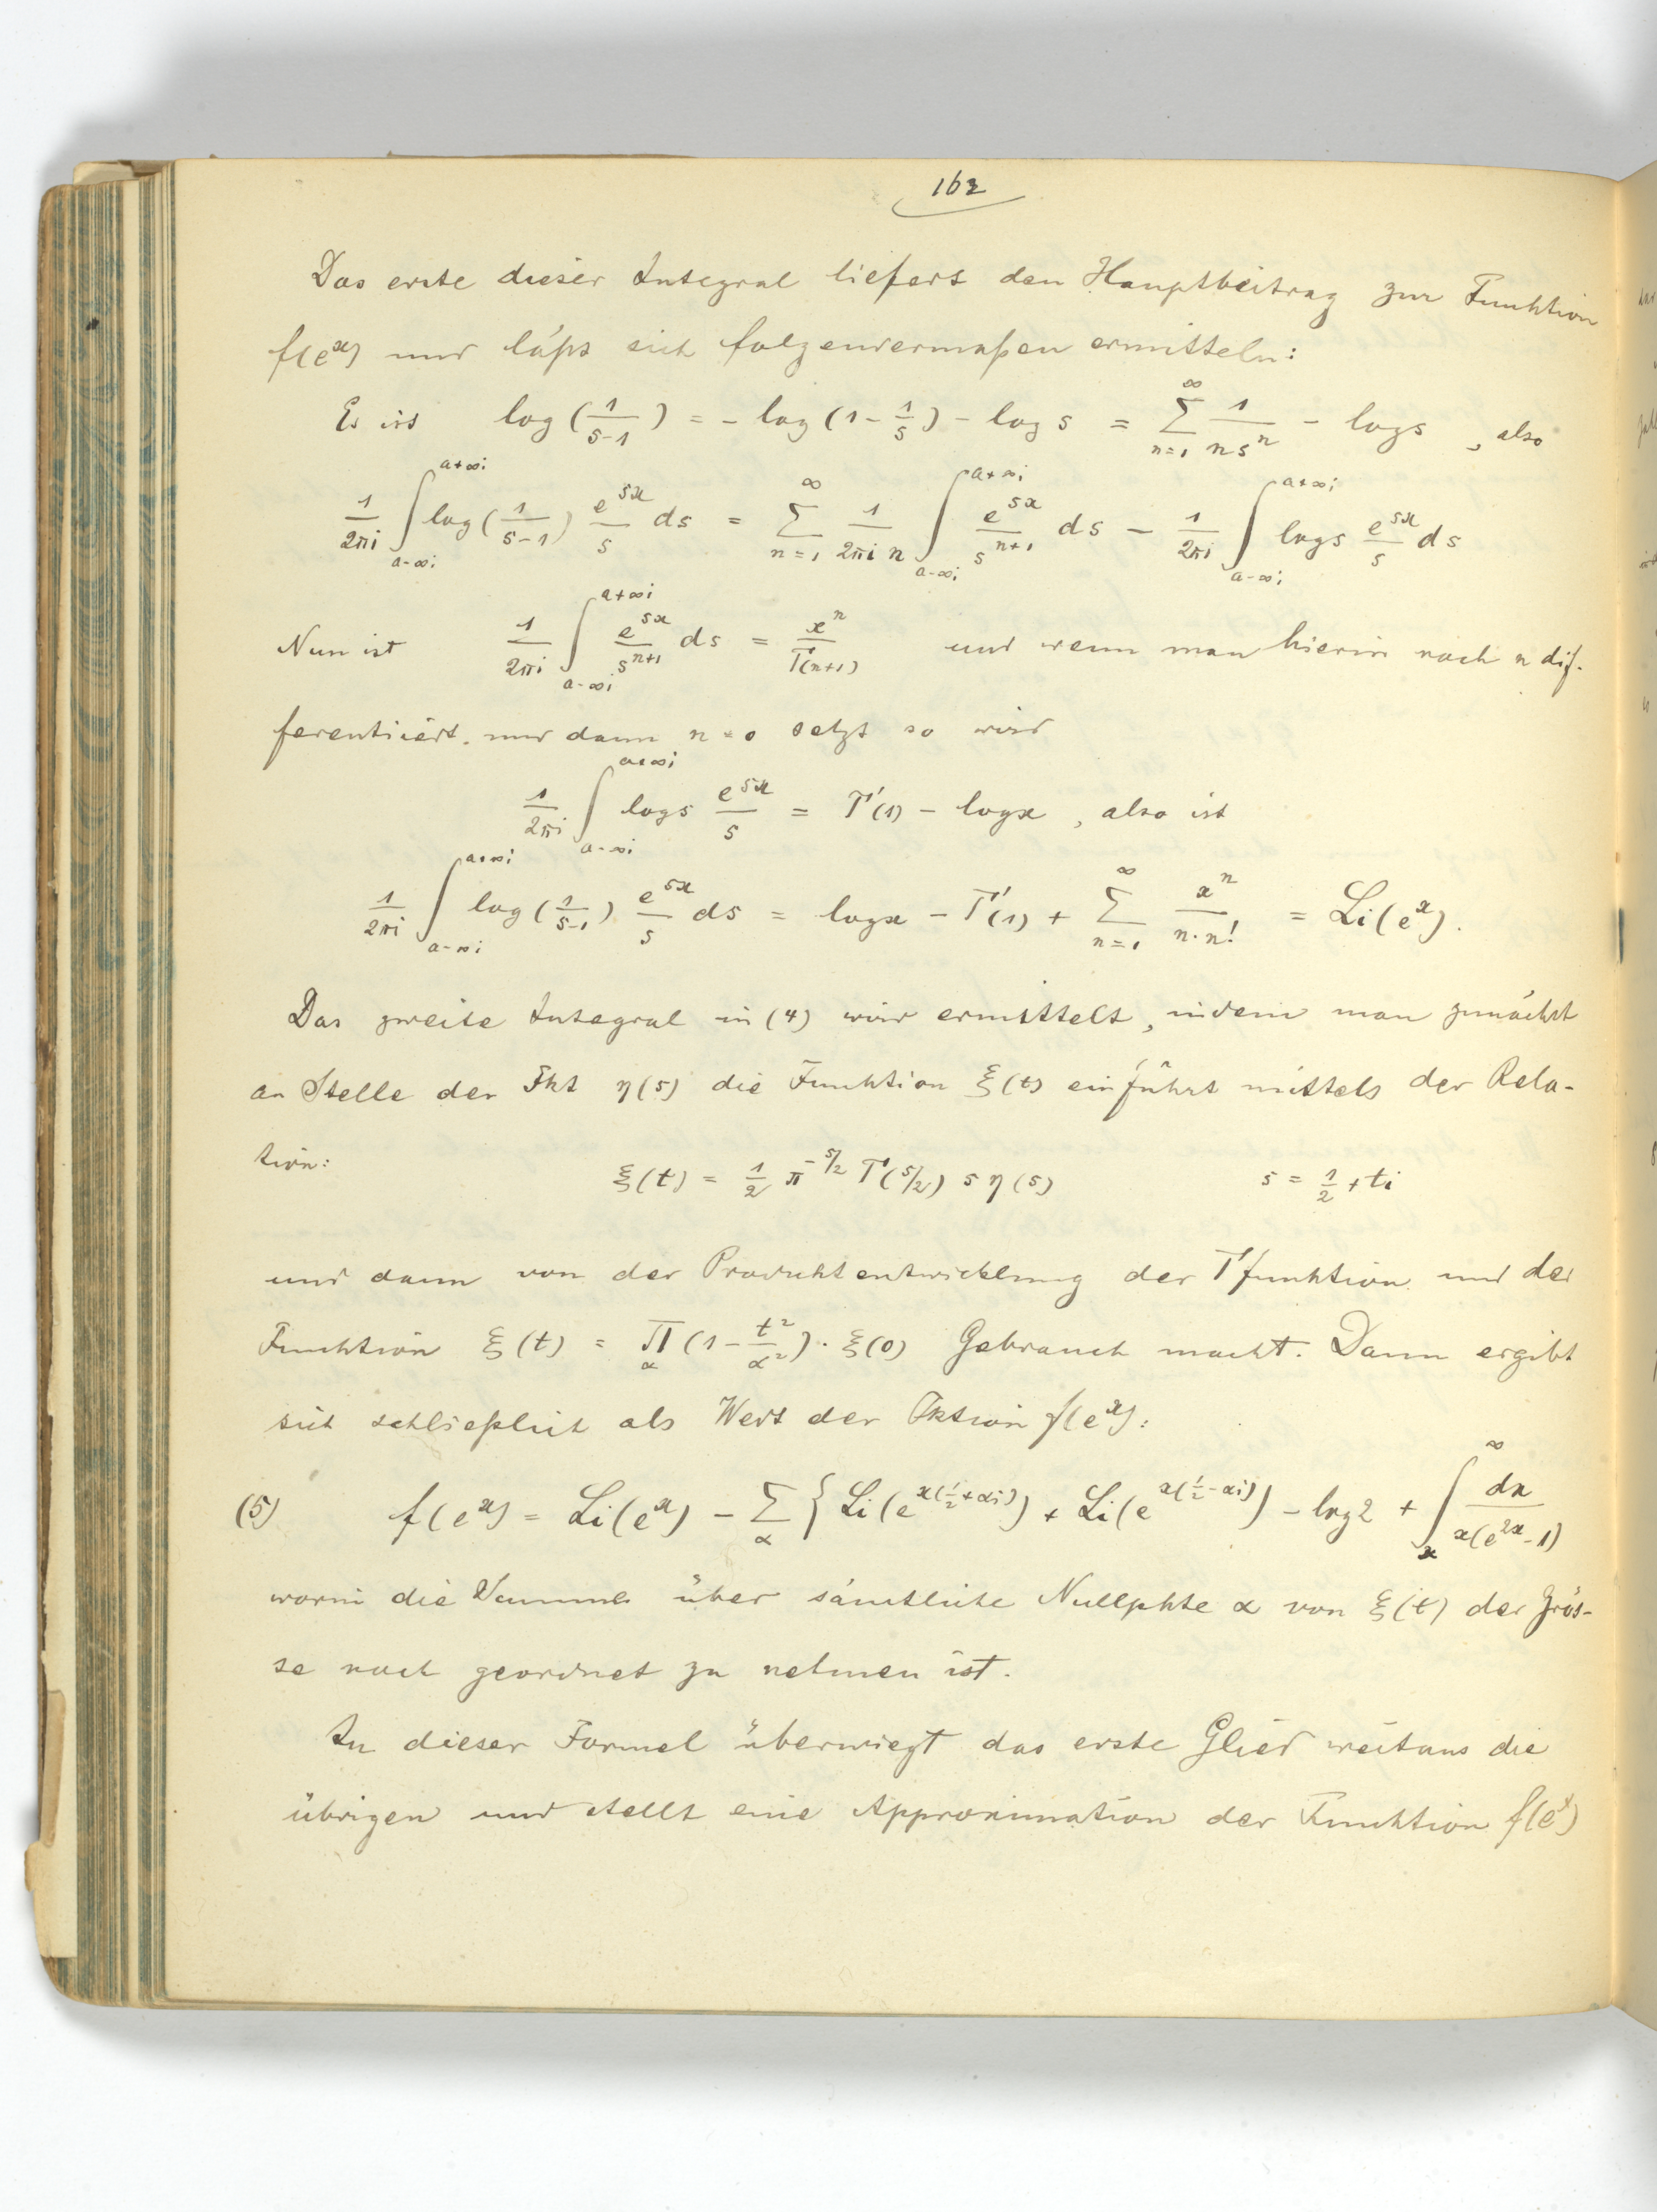 162
Das erste dieser Integral liefert den Hauptbeitrag zur Funktion
f(e^x) und läßt sich folgendermaßen ermitteln:
Es ist log(1/(s-1)) = - log(1 - 1/s) - log s = ∑_{n=1}^{∞} 1/(n s^n) - log s, also
1/(2πi) ∫_{a-∞i}^{a+∞i} log(1/(s-1)) e^{sx}/s ds = ∑_{n=1}^{∞} 1/(2πi n) ∫_{a-∞i}^{a+∞i} e^{sx}/s^{n+1} ds - 1/(2πi) ∫_{a-∞i}^{a+∞i} log s e^{sx}/s ds
Nun ist 1/(2πi) ∫_{a-∞i}^{a+∞i} e^{sx}/s^{n+1} ds = x^n/Γ(n+1) und wenn man hierin nach n dif-
ferentiiert und dann n = 0 setzt so wird
1/(2πi) ∫_{a-∞i}^{a+∞i} log s e^{sx}/s = Γ'(1) - log x, also ist
1/(2πi) ∫_{a-∞i}^{a+∞i} log(1/(s-1)) e^{sx}/s ds = log x - Γ'(1) + ∑_{n=1}^{∞} x^n/(n·n!) = Li(e^x).
Das zweite Integral in (4) wird ermittelt, indem man zunächst
an Stelle der Fkt η(s) die Funktion ξ(t) einführt mittels der Rela-
tion:
ξ(t) = 1/2 π^{-s/2} Γ(s/2) s η(s) s = 1/2 + ti
und dann von der Produktentwicklung der Γfunktion und der
Funktion ξ(t) = ∏_α (1 - t²/α²)·ξ(0) Gebrauch macht. Dann ergibt
sich schließlich als Wert der Fktion f(e^x):
(5) f(e^x) = Li(e^x) - ∑_α {Li(e^{x(1/2+αi)}) + Li(e^{x(1/2-αi)}) - log 2 + ∫_x^∞ dx/(x(e^{2x}-1))
worin die Summe über sämtliche Nullpkte α von ξ(t) der Grös-
se nach geordnet zu nehmen ist.
In dieser Formel überwiegt das erste Glied weitaus die
übrigen und stellt eine Approximation der Funktion f(e^x)